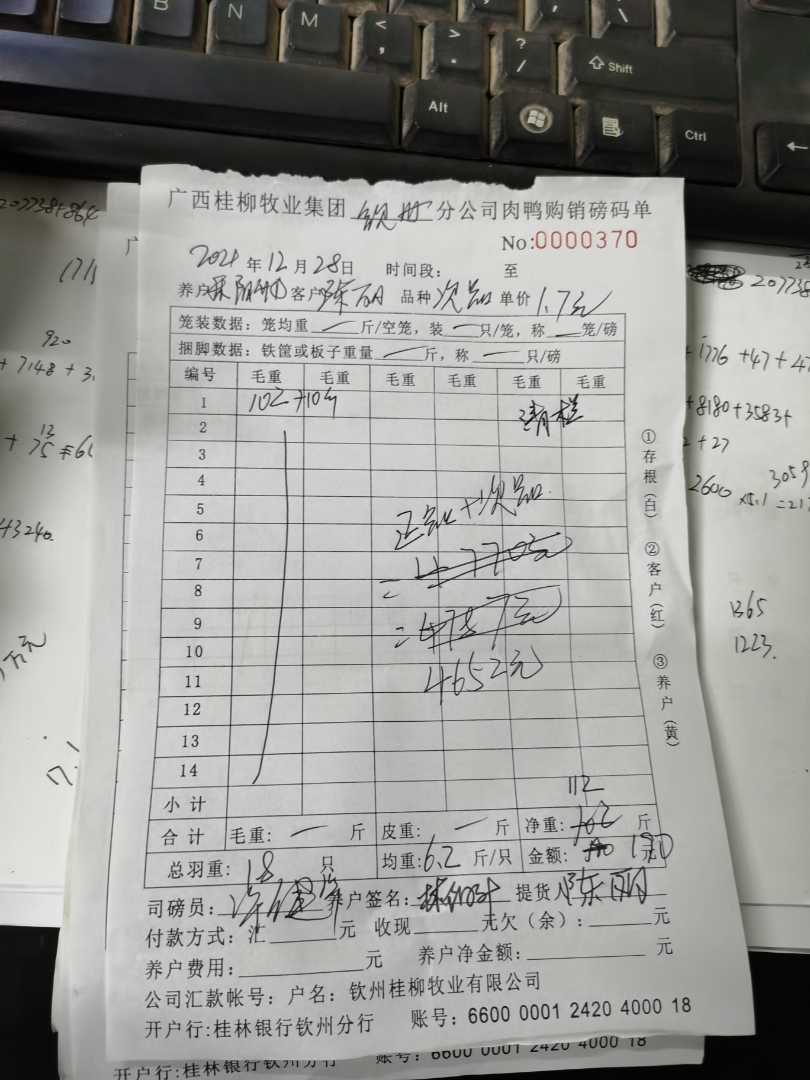 B N M < , > . ? / Shift
Alt Ctrl
207738+864
广西桂柳牧业集团 钦州 分公司肉鸭购销磅码单
No:0000370
2024 年 12 月 28 日 时间段: 至
养户 客户 陈丽 品种 次品 单价 1.7元
笼装数据: 笼均重 一 斤/空笼, 装 一 只/笼, 称 一 笼/磅
捆脚数据: 铁筐或板子重量 一 斤, 称 一 只/磅
编号 毛重 毛重 毛重 毛重 毛重 毛重
1
2 清栏
3
4
5 正品+次品
6
7 =4770元
8
9 =4787元
10
11 4652元
12
13
14
小计 112
合计 毛重: 一 斤 皮重: 一 斤 净重: 斤
总羽重: 18 只 均重: 6.2 斤/只 金额: 190 元
司磅员: 养户签名: 提货人 陈丽
付款方式: 汇 元 收现 元欠(余): 元
养户费用: 元 养户净金额: 元
公司汇款帐号: 户名: 钦州桂柳牧业有限公司
开户行:桂林银行钦州分行 账号: 6600 0001 2420 4000 18
开户行:桂林银行钦州分行 账号: 6600 0001 2420 4000 18
①存根(白) ②客户(红) ③养户(黄)
920
+ 7148 + 3
+3240
207738
+1776 +47 +47
+8180+3583+
2 + 27
2600
3059
1365
1223